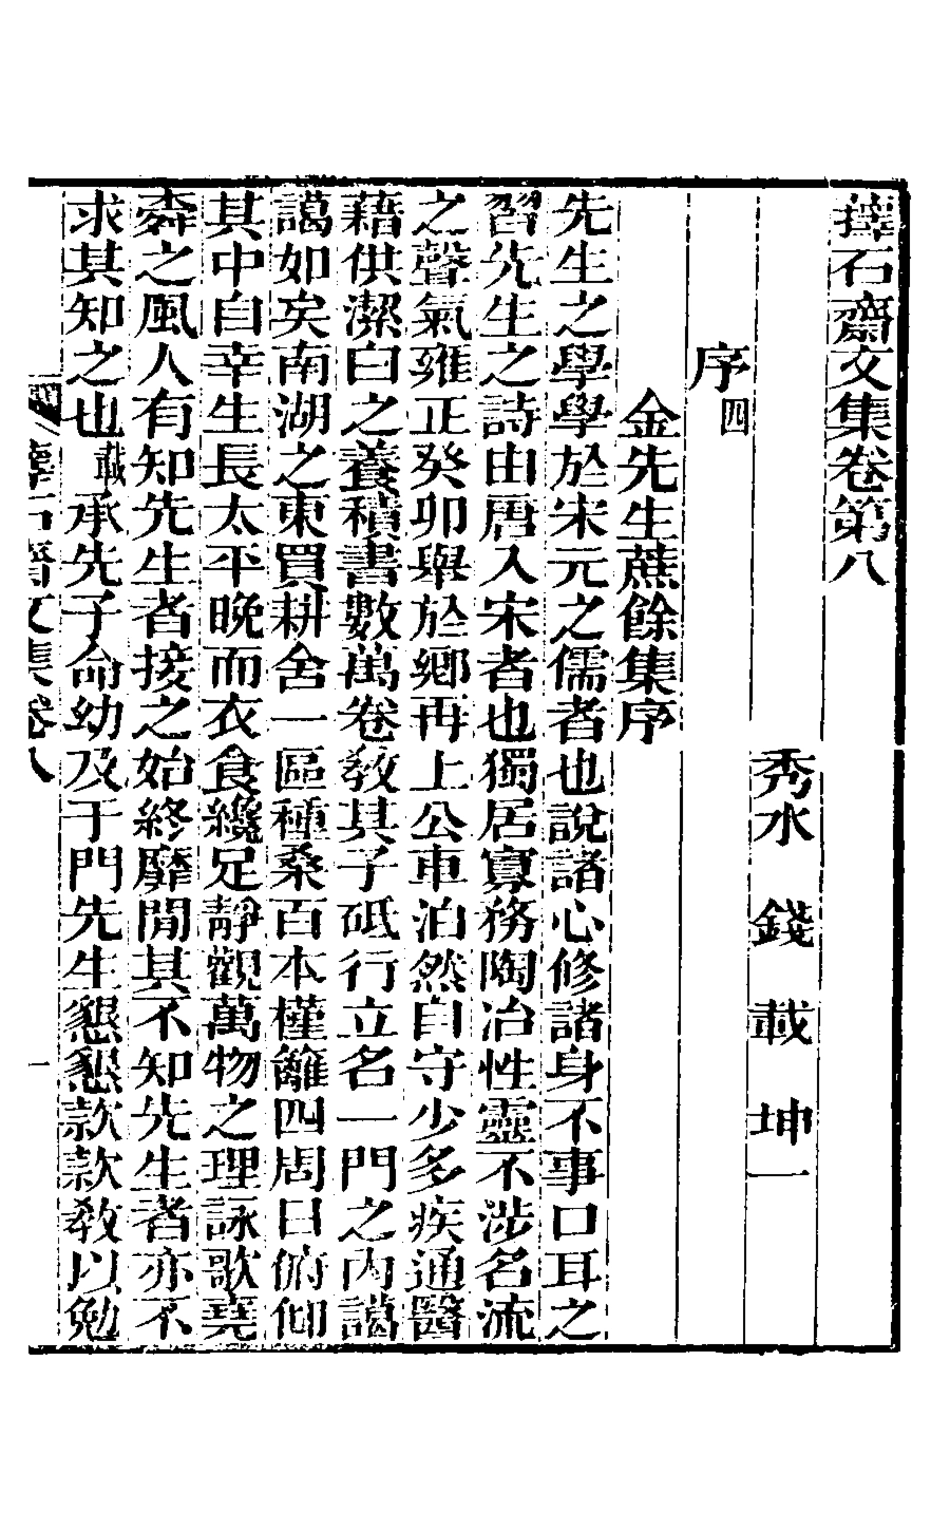 蘀石齋文集卷第八
秀水 錢 載 坤一
序四
金先生蕉餘集序
先生之學學於宋元之儒者也說諸心修諸身不事口耳之
習先生之詩由唐入宋者也獨居寡務陶冶性靈不涉名流
之聲氣雍正癸卯舉於鄉再上公車泊然自守少多疾通醫
藉供潔白之養積書數萬卷教其子砥行立名一門之內藹
藹如矣南湖之東買耕舍一區種桑百本槿籬四周日俯仰
其中自幸生長太平晚而衣食纔足靜觀萬物之理詠歌堯
舜之風人有知先生者接之始終靡閒其不知先生者亦不
求其知之也載承先子命幼及于門先生懇懇款款教以勉
蘀石齋文集卷八
一